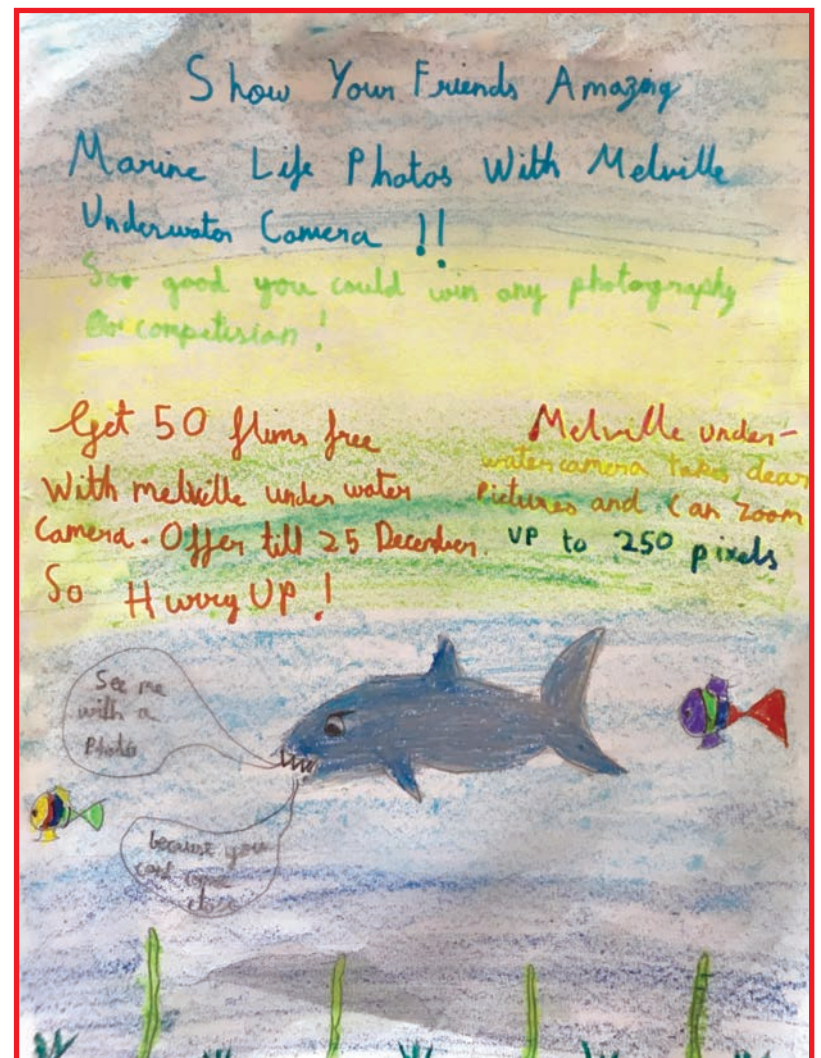 Show Your Friends Amazing
Marine Life Photos With Melville
Underwater Camera !!
Soo good you could win any photography
competision !
Get 50 flims free
With melville under water
Camera. Offer till 25 December.
So Hurry UP !
Melville under-
water camera takes clear
Pictures and Can Zoom
UP to 250 pixels
See me
with a
Photo
because you
cant come
close